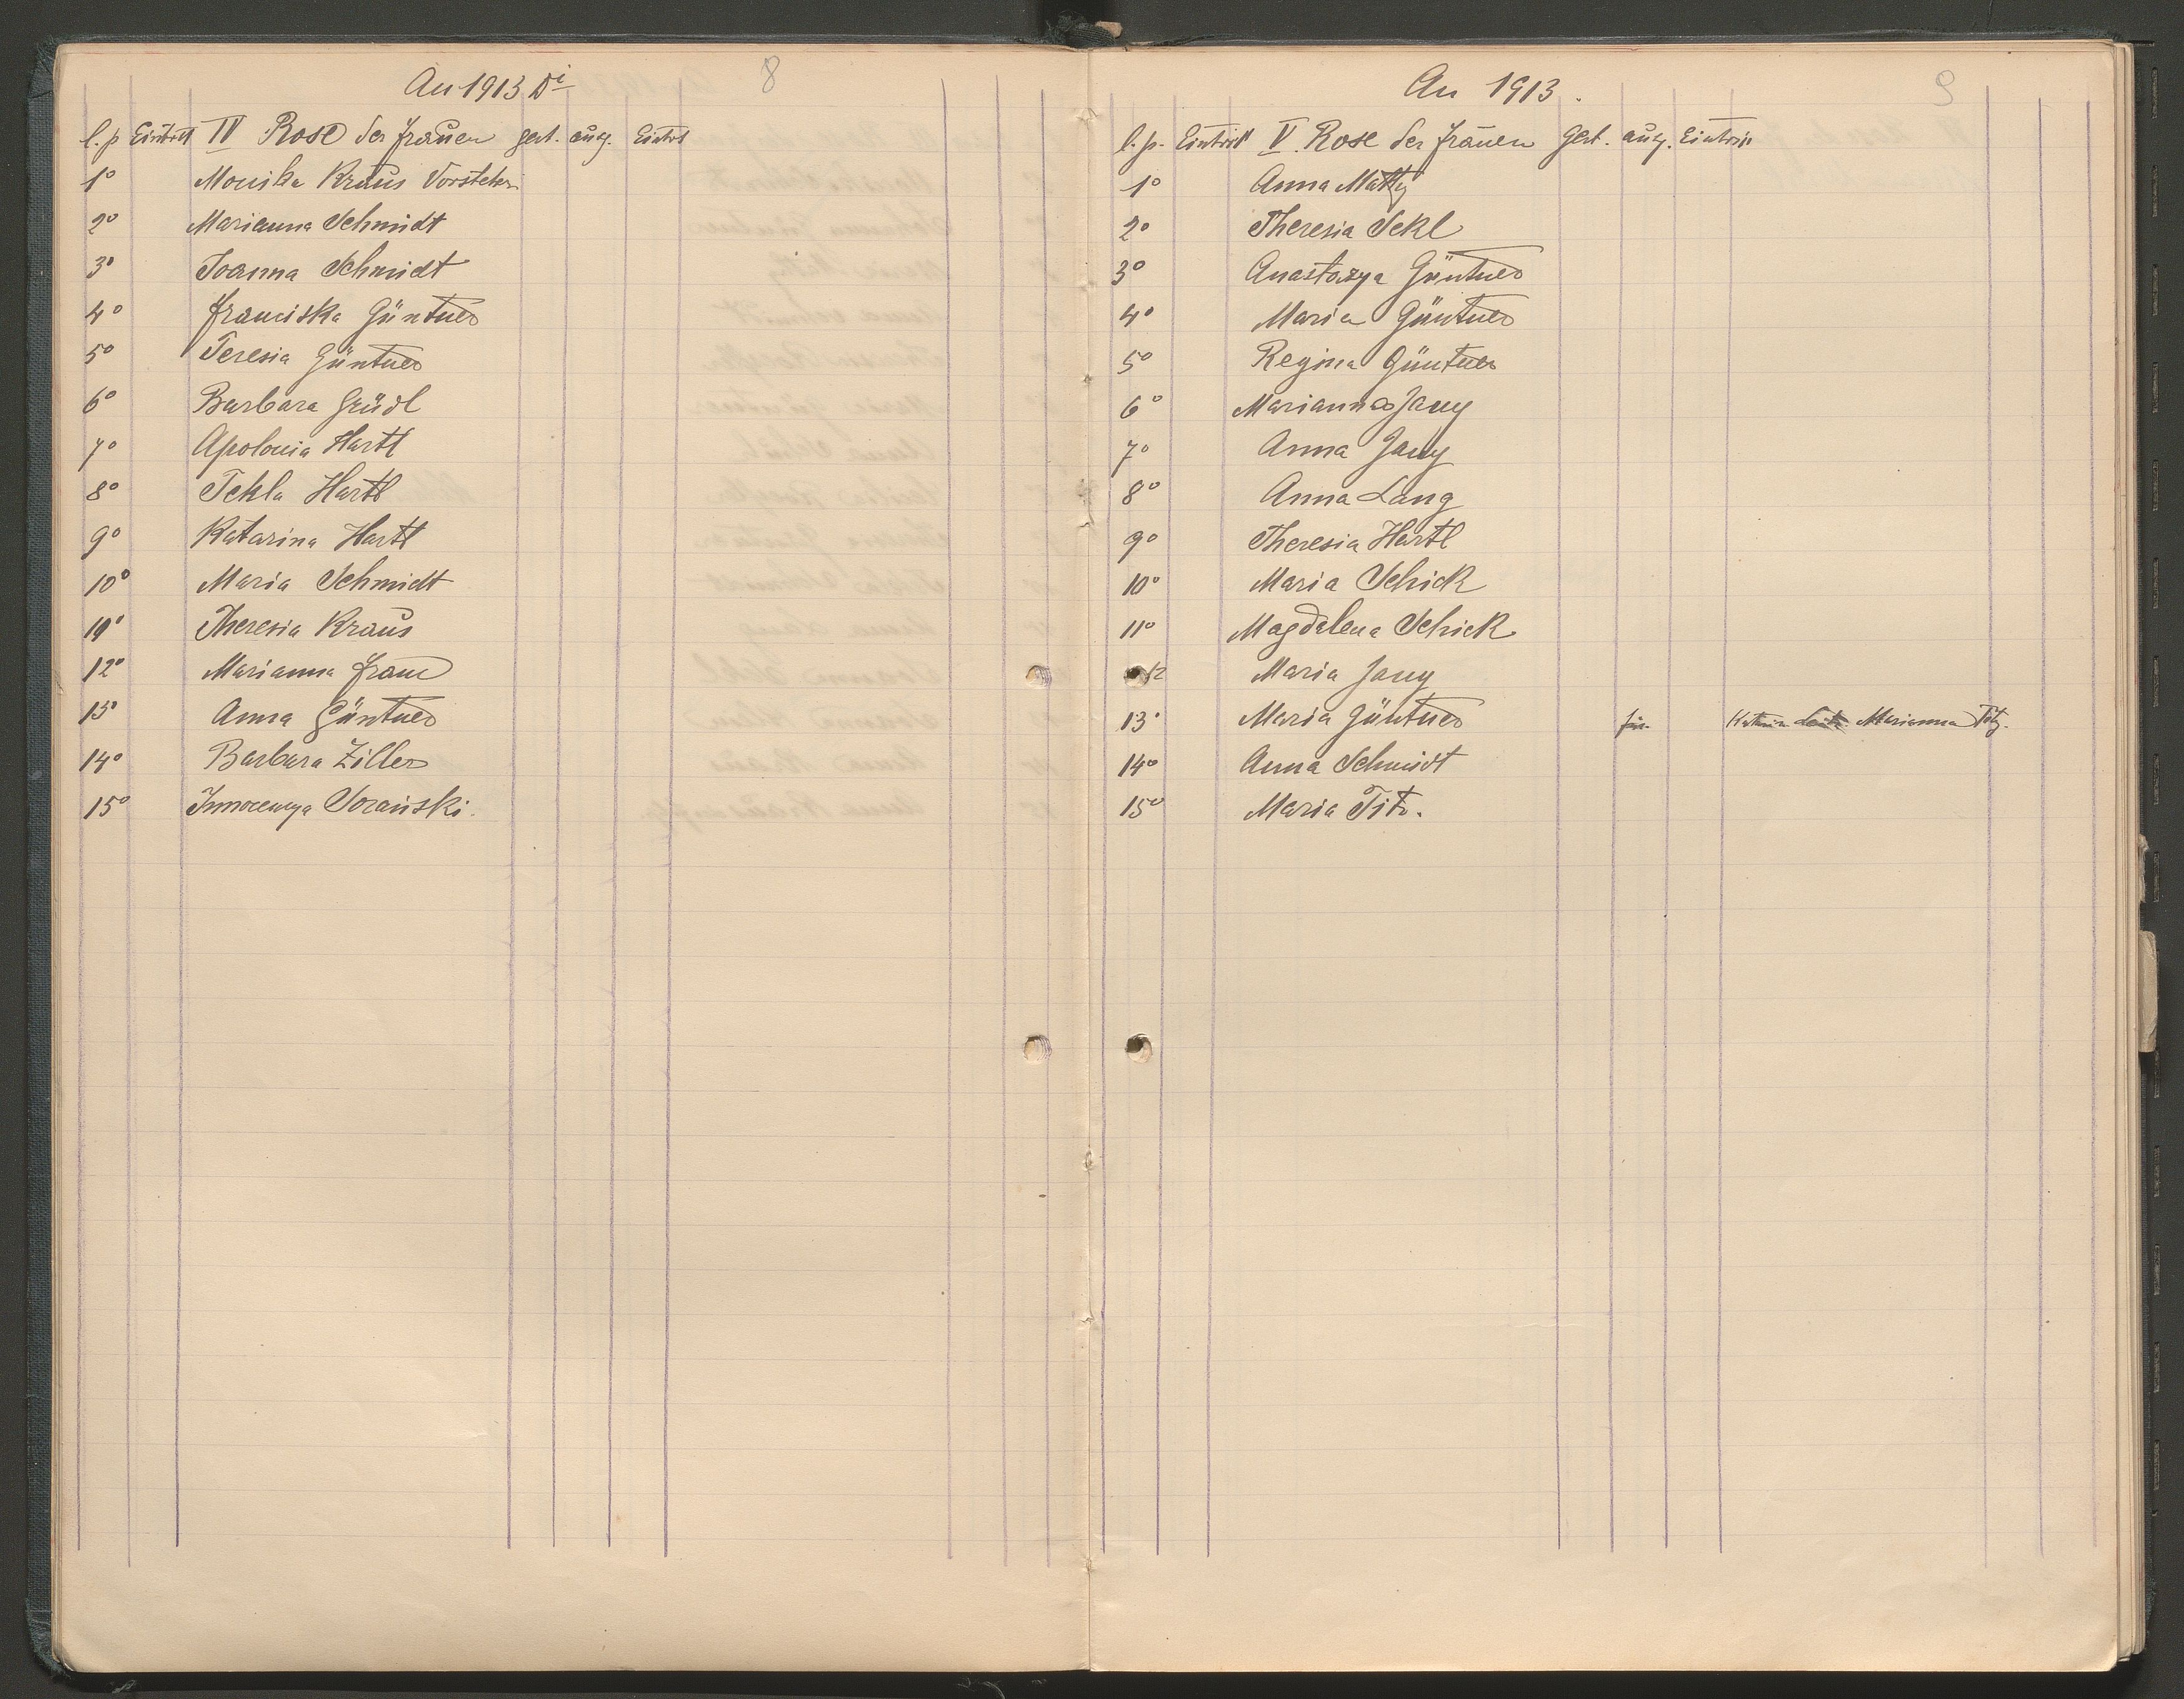 An 1913 Di
8
l.p Eintritt IV Rose der frauen gest. ausg. Eintrt
1o Monika Kraus Vorsteher.
2o Marianna Schmidt
3o Joanna Schmidt
4o Franciska Güntner
5o Teresia Güntner
6o Barbara Grüdl
7o Apolonia Hartl
8o Tekla Hartl
9o Katarina Hartl
10o Maria Schmidt
11o Theresia Kraus
12o Marianna
13o Anna Güntner
14o Barbara Ziller
15o Sorański.
An 1913.
9
l.p. Eintritt V. Rose der frauen Gest. ausg. Eintritt
1o Anna Matty
2o Theresia Sekl
3o Anastazya Güntner
4o Maria Güntner
5o Regina Güntner
6o Marianna Jany
7o Anna Jany
8o Anna Lang
9o Theresia Hartl
10o Maria Schick
11o Magdalena Schick
12 Maria Jany
13o Maria Güntner Marianna Titz.
14o Anna Schmidt
15o Maria Titz.